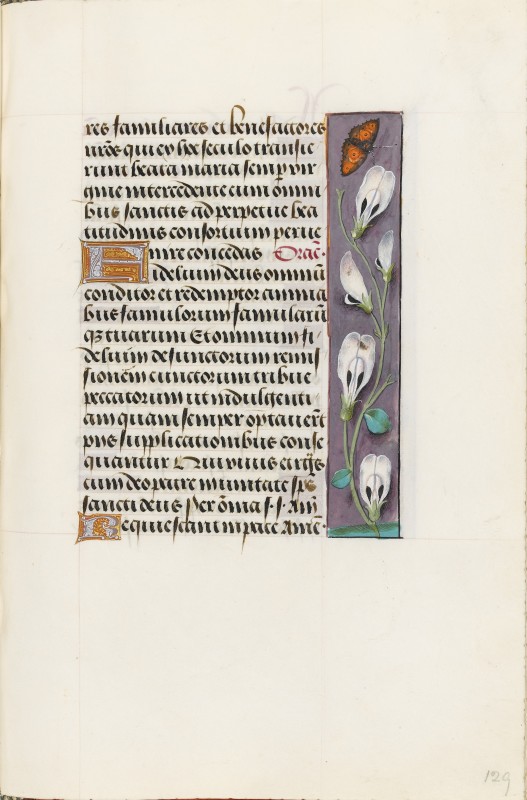 res familiares et benefactores
urōs qui ex hoc seculo transie
runt beata maria semp vir
gine intercedente cum omni
bus sanctis ad perpetue bea
titudinis consortium perve
nire concedas Orac̄.
Fidelium deus omniū
conditor et redemptor animab
bus famulorum famularū
qz tuarum Et omnium fi
delium defunctorum remis
sionem cunctorum tribue
peccatorum ut indulgenti
am quam semper optaverūt
piis supplicationibus conse
quantur Qui vivis et rgs
cum deo patre in unitate sps
sancti deus Per om̄ia s. s. Am̄
Requiescant in pace Ame.
129